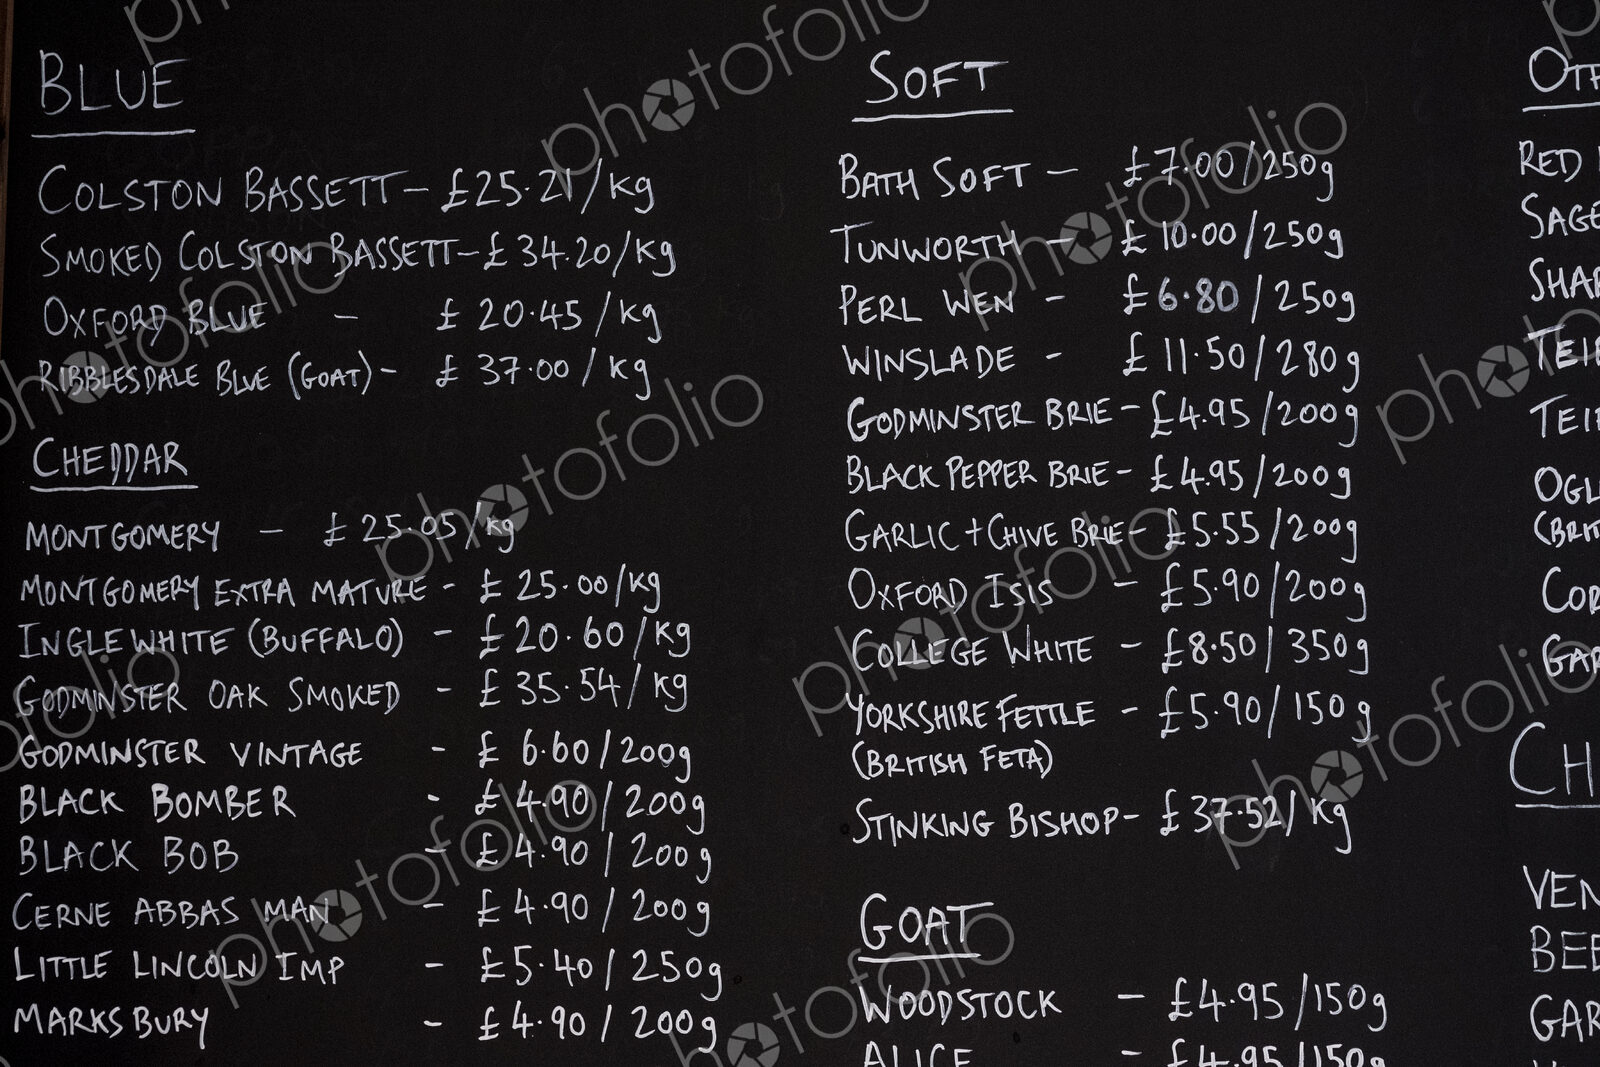 BLUE
COLSTON BASSETT - £25.21/kg
SMOKED COLSTON BASSETT - £34.20/kg
OXFORD BLUE - £20.45/kg
RIBBLESDALE BLUE (GOAT) - £37.00/kg
CHEDDAR
MONTGOMERY - £25.05/kg
MONTGOMERY EXTRA MATURE - £25.00/kg
INGLEWHITE (BUFFALO) - £20.60/kg
GODMINSTER OAK SMOKED - £35.54/kg
GODMINSTER VINTAGE - £6.60/200g
BLACK BOMBER - £4.90/200g
BLACK BOB - £4.90/200g
CERNE ABBAS MAN - £4.90/200g
LITTLE LINCOLN IMP - £5.40/250g
MARKSBURY - £4.90/200g
SOFT
BATH SOFT - £7.00/250g
TUNWORTH - £10.00/250g
PERL WEN - £6.80/250g
WINSLADE - £11.50/280g
GODMINSTER BRIE - £4.95/200g
BLACK PEPPER BRIE - £4.95/200g
GARLIC + CHIVE BRIE - £5.55/200g
OXFORD ISIS - £5.90/200g
COLLEGE WHITE - £8.50/350g
YORKSHIRE FETTLE - £5.90/150g
(BRITISH FETA)
STINKING BISHOP - £37.52/kg
GOAT
WOODSTOCK - £4.95/150g
ALICE - £4.95/150g
RED
SAGE
photofolio